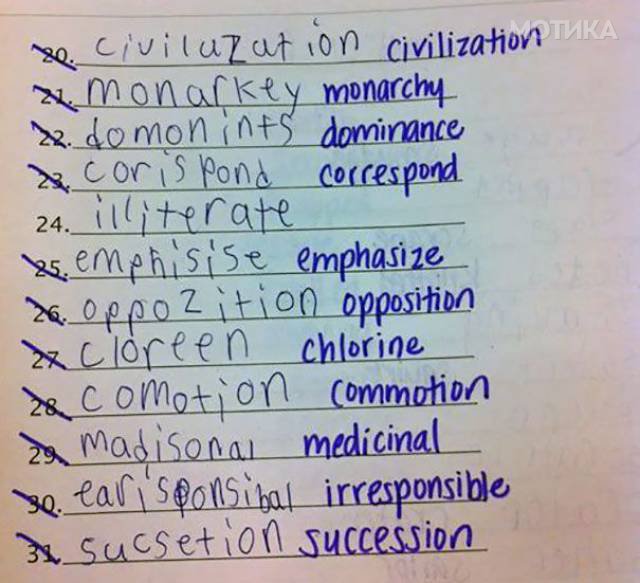 МОТИКА
20. civiluzation civilization
21. monarkey monarchy
22. domonints dominance
23. corispond correspond
24. illiterate
25. emphisise emphasize
26. oppozition opposition
27. cloreen chlorine
28. comotion commotion
29. madisonal medicinal
30. earisponsibal irresponsible
31. sucsetion succession